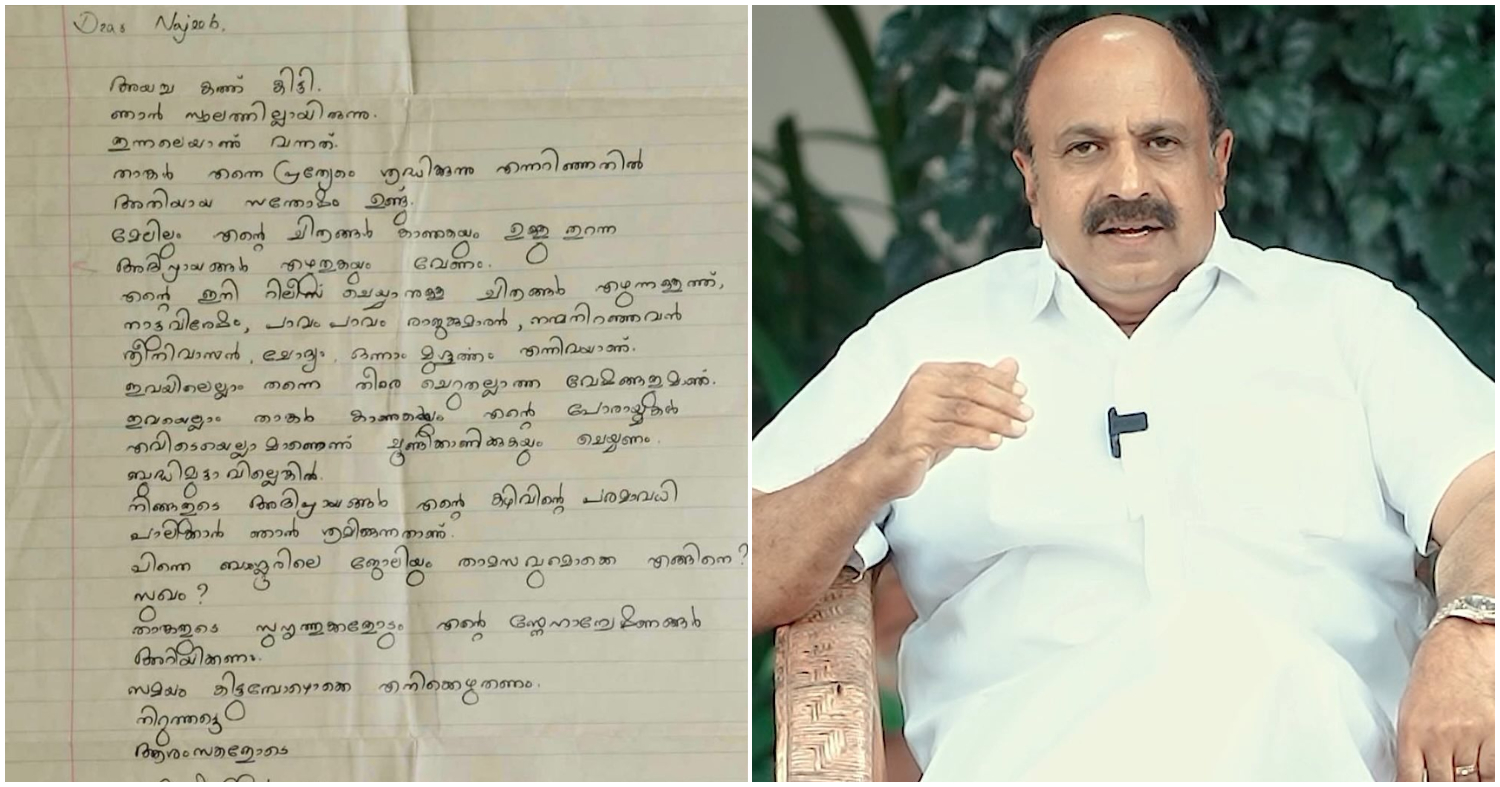 Dear Najeeb.
അയച്ച കത്ത് കിട്ടി.
ഞാൻ സ്ഥലത്തില്ലായിരുന്നു.
ഇന്നലെയാണ് വന്നത്.
താങ്കൾ എന്നെ പ്രത്യേകം ശ്രദ്ധിക്കുന്നു എന്നറിഞ്ഞതിൽ
അതിയായ സന്തോഷം ഉണ്ട്.
മേലിലും എന്റെ ചിത്രങ്ങൾ കാണുകയും ഉള്ളു തുറന്ന
അഭിപ്രായങ്ങൾ എഴുതുകയും വേണം.
എന്റെ ഇനി റിലീസ് ചെയ്യാനുള്ള ചിത്രങ്ങൾ എഴുന്നള്ളത്ത്,
നാട്ടുവിശേഷം, പാവം പാവം രാജകുമാരൻ, നന്മനിറഞ്ഞവൻ
ശ്രീനിവാസൻ, ചോദ്യം, ഒന്നാം മുഹൂർത്തം എന്നിവയാണ്.
ഇവയിലെല്ലാം തന്നെ തീരെ ചെറുതല്ലാത്ത വേഷങ്ങളുമാണ്.
ഇവയെല്ലാം താങ്കൾ കാണുകയും എന്റെ പോരായ്മകൾ
എവിടെയെല്ലാമാണെന്ന് ചൂണ്ടിക്കാണിക്കുകയും ചെയ്യണം.
ബുദ്ധിമുട്ടാവില്ലെങ്കിൽ.
നിങ്ങളുടെ അഭിപ്രായങ്ങൾ എന്റെ കഴിവിന്റെ പരമാവധി
പാലിക്കാൻ ഞാൻ ശ്രമിക്കുന്നതാണ്.
പിന്നെ ബാംഗ്ലൂരിലെ ജോലിയും താമസവുമൊക്കെ എങ്ങിനെ?
സുഖം?
താങ്കളുടെ സുഹൃത്തുക്കളോടും എന്റെ സ്നേഹാന്വേഷണങ്ങൾ
അറിയിക്കണം.
സമയം കിട്ടുമ്പോഴൊക്കെ എനിക്കെഴുതണം.
നിറുത്തട്ടെ
ആശംസകളോടെ